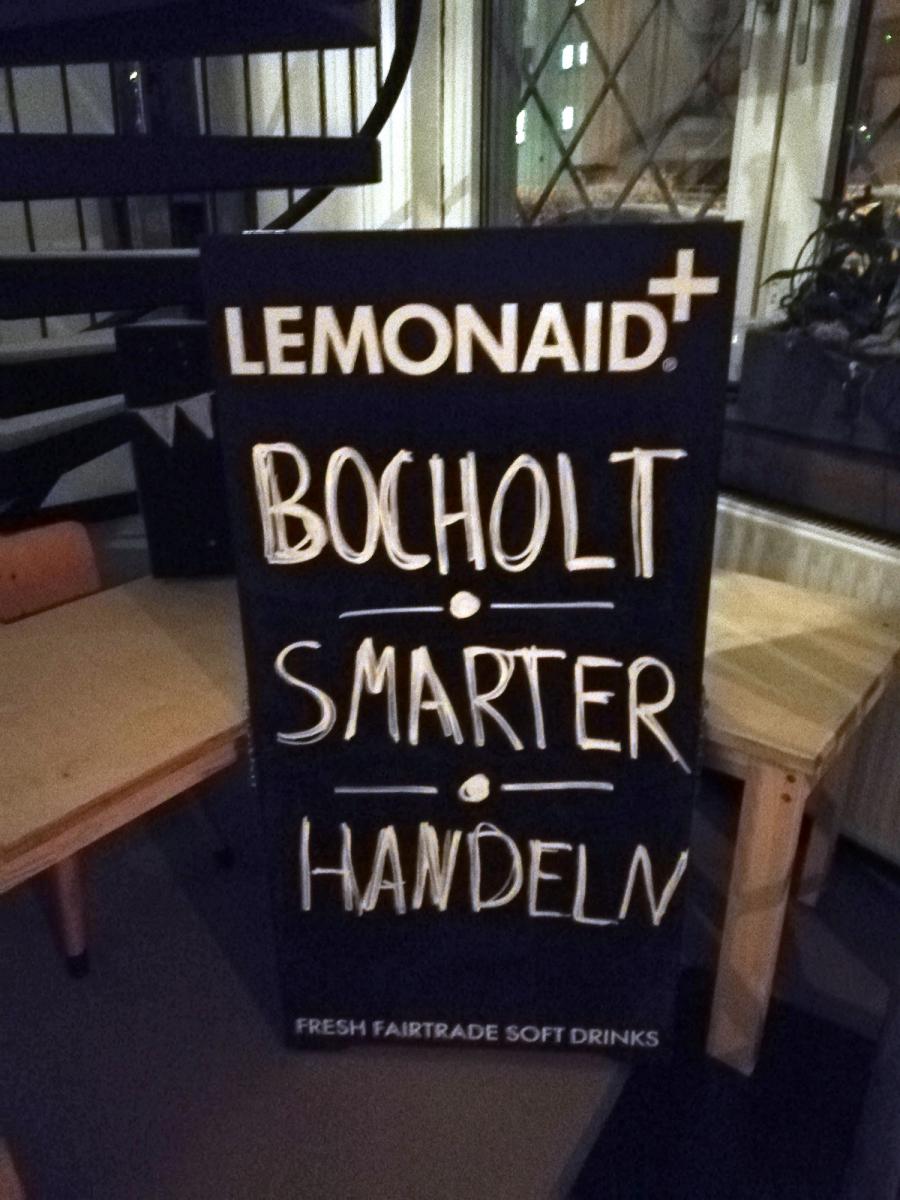 LEMONAID+®
BOCHOLT
SMARTER
HANDELN
FRESH FAIRTRADE SOFT DRINKS